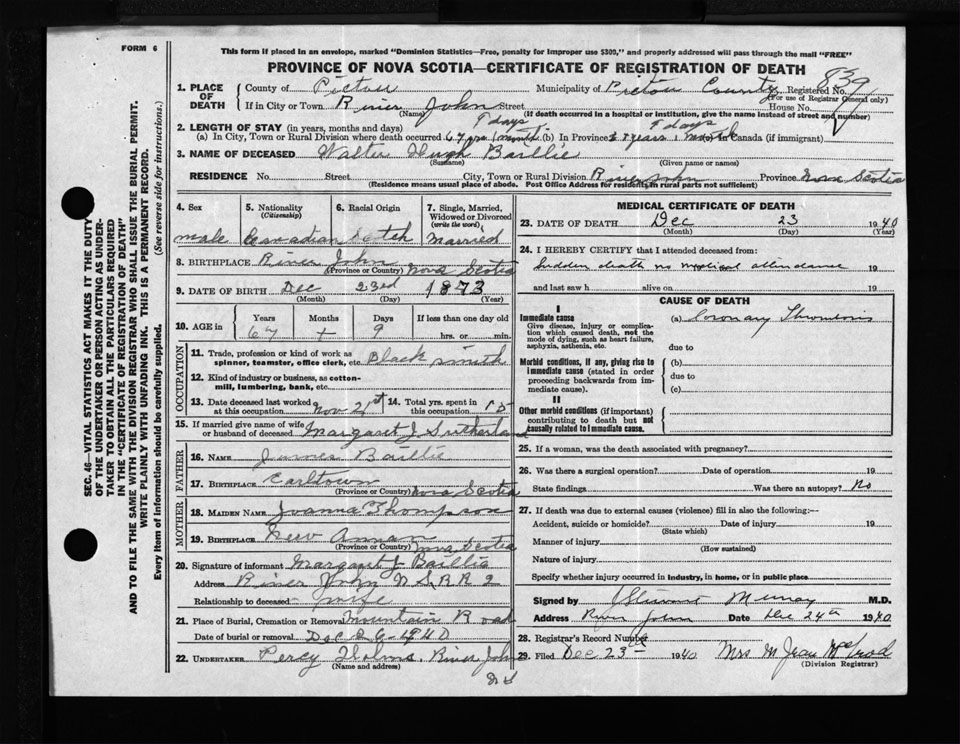 FORM 6
This form if placed in an envelope, marked "Dominion Statistics—Free, penalty for improper use $300," and properly addressed will pass through the mail "FREE"
PROVINCE OF NOVA SCOTIA—CERTIFICATE OF REGISTRATION OF DEATH
839
1. PLACE OF DEATH
County of Pictou Municipality of Pictou County Registered No.
(For use of Registrar General only)
If in City or Town River John Street House No.
(Name) (If death occurred in a hospital or institution, give the name instead of street and number)
9 days 9 days
2. LENGTH OF STAY (in years, months and days)
(a) In City, Town or Rural Division where death occurred 67 (b) In Province years (c) In Canada (if immigrant)
3. NAME OF DECEASED Walter Hugh Baillie
(Surname) (Given name or names)
RESIDENCE No. Street City, Town or Rural Division River John Province Nova Scotia
(Residence means usual place of abode. Post Office Address for residents in rural parts not sufficient)
4. Sex 5. Nationality (Citizenship) 6. Racial Origin 7. Single, Married, Widowed or Divorced (write the word)
male Canadian Scotch Married
8. BIRTHPLACE River John Nova Scotia
(Province or Country)
9. DATE OF BIRTH Dec 23rd 1873
(Month) (Day) (Year)
10. AGE in Years Months Days If less than one day
67 9 hrs. or min.
OCCUPATION
11. Trade, profession or kind of work as spinner, teamster, office clerk, etc. Blacksmith
12. Kind of industry or business, as cotton-mill, lumbering, bank, etc.
13. Date deceased last worked at this occupation Nov 21st 14. Total yrs. spent in this occupation
15. If married give name of wife or husband of deceased Margaret J Sutherland
FATHER
16. NAME James Baillie
17. BIRTHPLACE Earltown Nova Scotia
(Province or Country)
MOTHER
18. MAIDEN NAME Joanna Thompson
19. BIRTHPLACE New Annan Nova Scotia
(Province or Country)
20. Signature of informant Margaret J Baillie
Address River John N S R R 2
Relationship to deceased wife
21. Place of Burial, Cremation or Removal Mountain Road
Date of burial or removal Dec 26-1940
22. UNDERTAKER Percy Holms River John
(Name and address)
N S
MEDICAL CERTIFICATE OF DEATH
23. DATE OF DEATH Dec 23 1940
(Month) (Day) (Year)
24. I HEREBY CERTIFY that I attended deceased from:
Sudden death no medical attendance 19
and last saw h alive on 19
CAUSE OF DEATH
I
Immediate cause (a) Coronary Thrombosis
Give disease, injury or complication which caused death, not the mode of dying, such as heart failure, asphyxia, asthenia, etc.
due to
Morbid conditions, if any, giving rise to immediate cause (stated in order proceeding backwards from immediate cause).
(b)
due to
(c)
II
Other morbid conditions (if important) contributing to death but not causally related to immediate cause.
25. If a woman, was the death associated with pregnancy?
26. Was there a surgical operation? Date of operation 19
State findings Was there an autopsy? No
27. If death was due to external causes (violence) fill in also the following:—
Accident, suicide or homicide? Date of injury 19
(State which)
Manner of injury
(How sustained)
Nature of injury
Specify whether injury occurred in industry, in home, or in public place
Signed by J Stewart Murray M.D.
Address River John Date Dec 24th 1940
28. Registrar's Record Number
29. Filed Dec 23rd 1940 Mrs M Jean
(Division Registrar)
SEC. 46—VITAL STATISTICS ACT MAKES IT THE DUTY
OF THE UNDERTAKER OR PERSON ACTING AS UNDER-
TAKER TO OBTAIN ALL THE PARTICULARS REQUIRED
IN THE "CERTIFICATE OF REGISTRATION OF DEATH"
AND TO FILE THE SAME WITH THE DIVISION REGISTRAR WHO SHALL ISSUE THE BURIAL PERMIT.
WRITE PLAINLY WITH UNFADING INK. THIS IS A PERMANENT RECORD.
Every item of information should be carefully supplied. (See reverse side for instructions.)